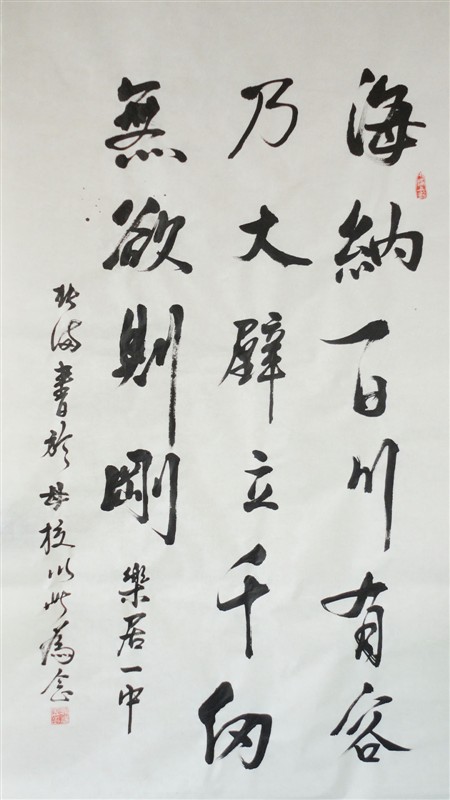 海納百川有容
乃大壁立千仞
無欲則剛
樂居一中
書於母校以此為念